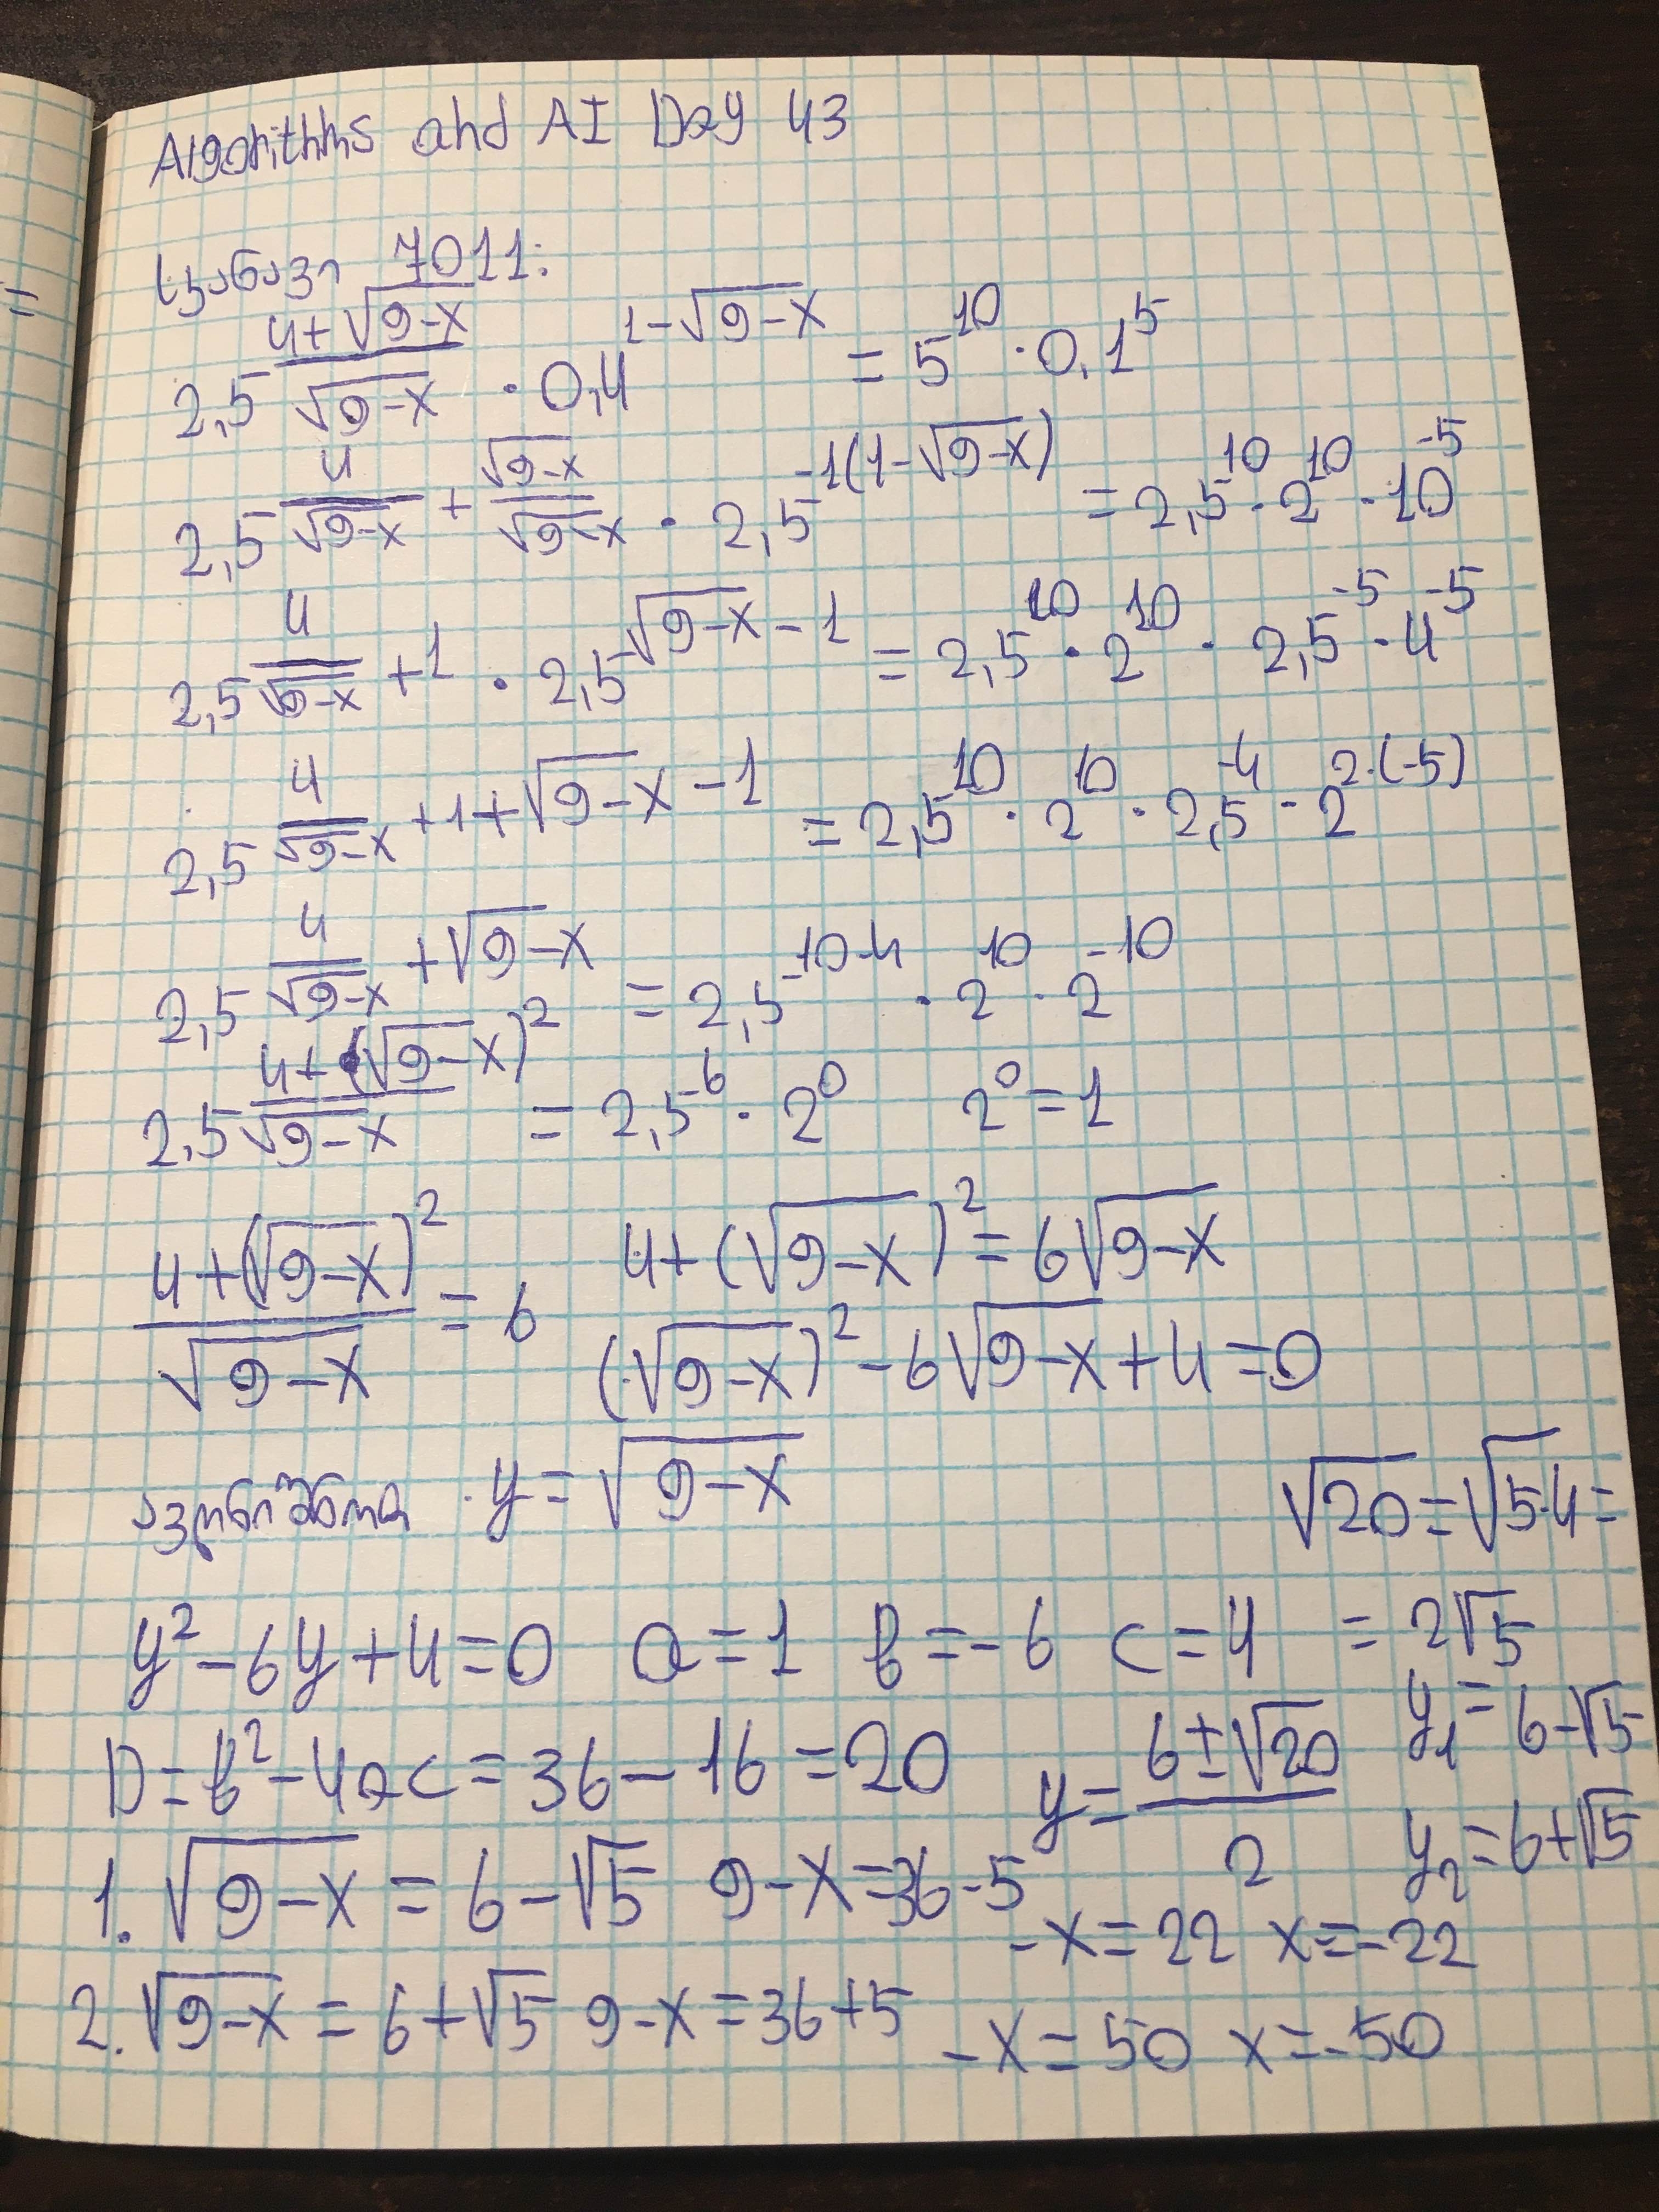 Algorithms and AI Day 43
სკანავი 7011:
2,5^((4+√(9-x))/√(9-x)) · 0,4^(1-√(9-x)) = 5^10 · 0,1^5
2,5^(4/√(9-x) + √(9-x)/√(9-x)) · 2,5^(-1(1-√(9-x))) = 2,5^10 · 2^10 · 10^-5
2,5^(4/√(9-x) + 1) · 2,5^(√(9-x) - 1) = 2,5^10 · 2^10 · 2,5^-5 · 4^-5
2,5^(4/√(9-x) + 1 + √(9-x) - 1) = 2,5^10 · 2^10 · 2,5^-4 · 2^(2·(-5))
2,5^(4/√(9-x) + √(9-x)) = 2,5^(10-4) · 2^10 · 2^-10
2,5^((4+(√(9-x))^2)/√(9-x)) = 2,5^6 · 2^0 2^0 = 1
(4+(√(9-x))^2)/√(9-x) = 6 4+(√(9-x))^2 = 6√(9-x)
(√(9-x))^2 - 6√(9-x) + 4 = 0
ავღნიშნოთ y = √(9-x) √20 = √(5·4) =
y^2 - 6y + 4 = 0 a = 1 b = -6 c = 4 = 2√5
D = b^2 - 4ac = 36 - 16 = 20 y = (6±√20)/2 y₁ = 6-√5
y₂ = 6+√5
1. √(9-x) = 6-√5 9-x = 36-5 -x = 22 x = -22
2. √(9-x) = 6+√5 9-x = 36+5 -x = 50 x = -50